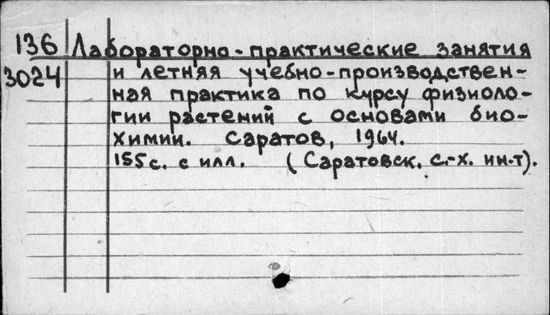 136 Лабораторно-практические занятия
3024 и летняя учебно-производствен-
ная практика по курсу физиоло-
гии растений с основами био-
химии. Саратов, 1964.
155с. с илл. (Саратовск. с.-х. ин-т).